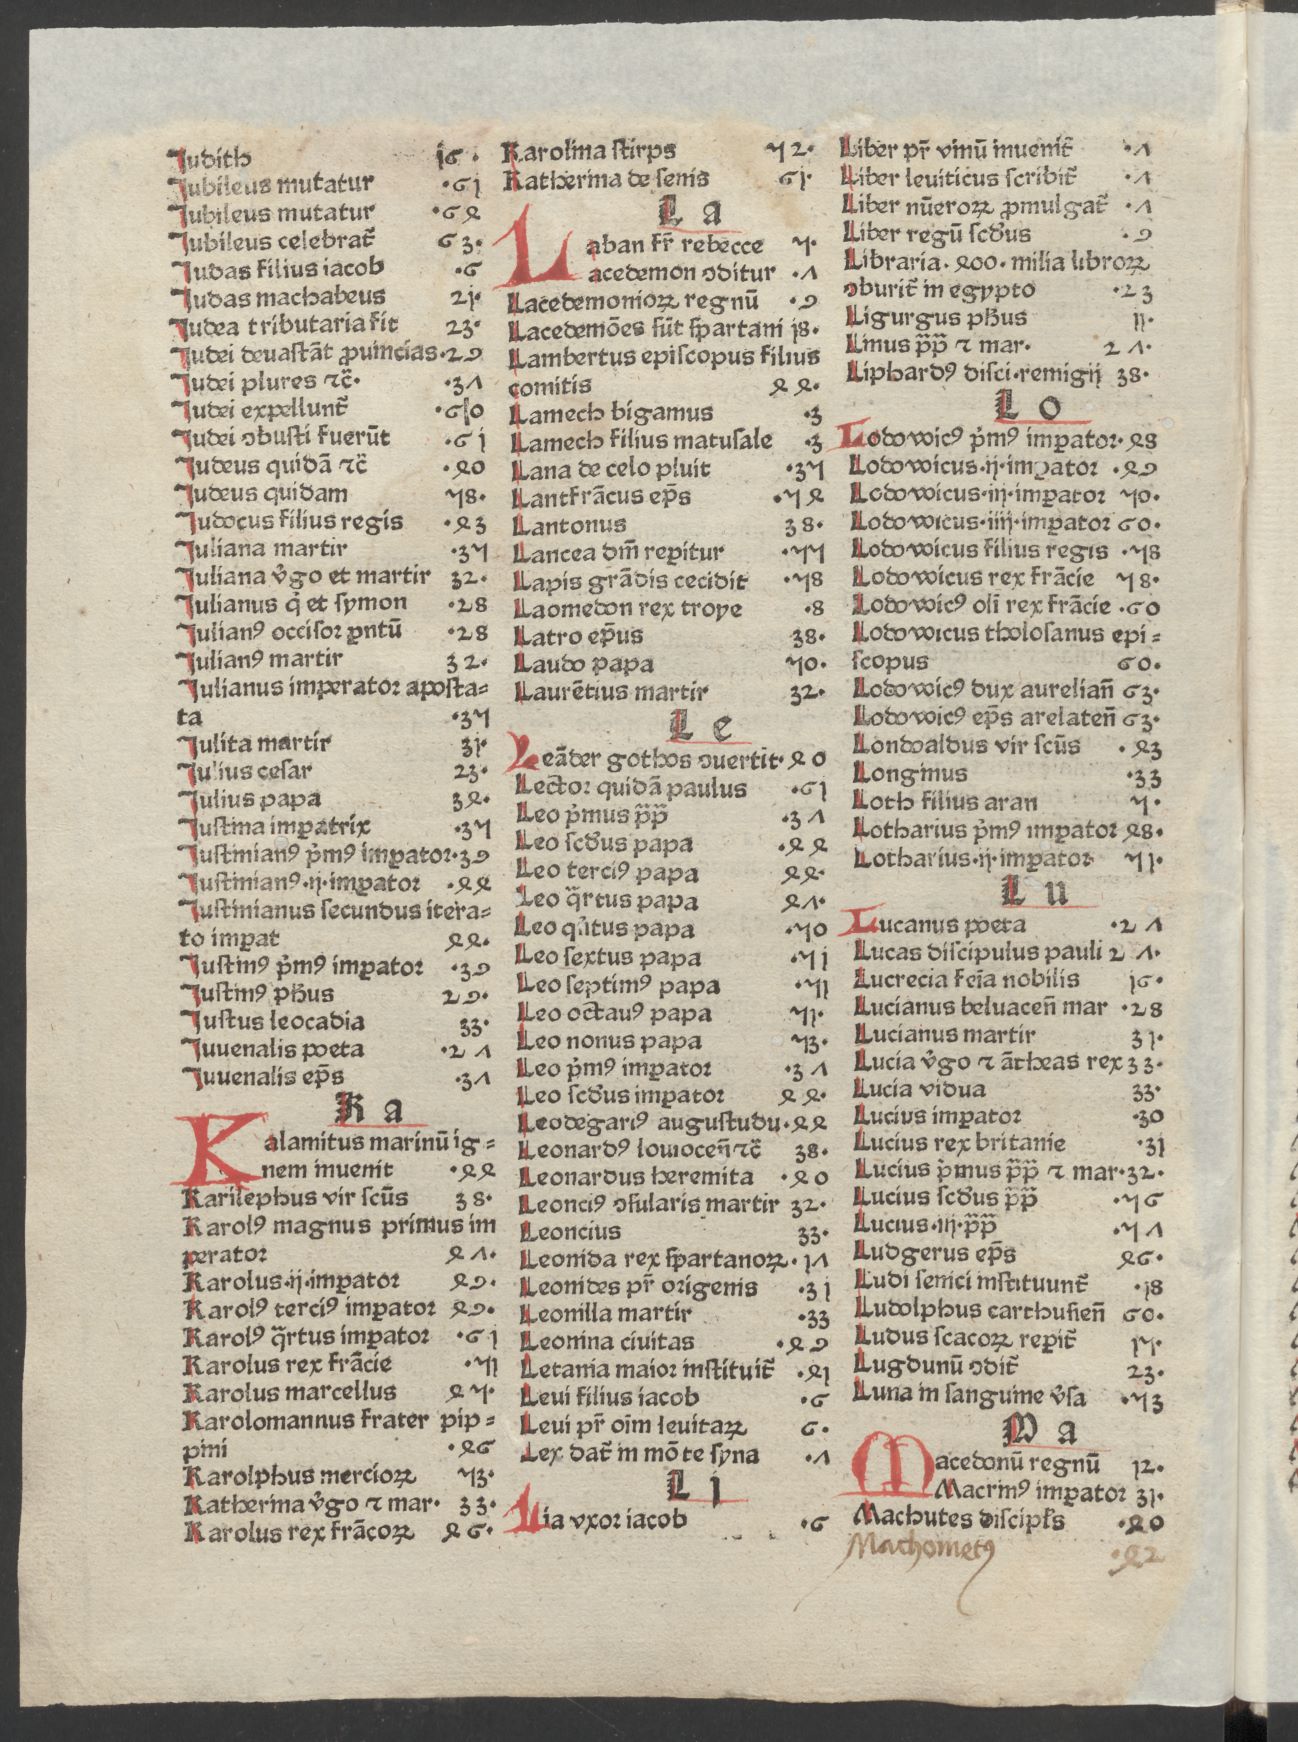 Judith 16 ·
Jubileus mutatur ·61
Jubileus mutatur ·64
Jubileus celebrat̃ 63·
Judas filius iacob ·6
Judas machabeus 21·
Judea tributaria fit 23·
Judei deuastãt ꝓuincias·29
Judei plures ⁊c̃· ·37
Judei expellunt̃
Judei ↄbusti fuerũt ·61
Judeus quidã ⁊c̃ ·40
Judeus quidam 58·
Judocus filius regis ·43
Juliana martir ·35
Juliana v̉go et martir 32·
Julianus q̇ et symon ·28
Julianꝰ occisor ꝑntũ ·28
Julianꝰ martir 32·
Julianus imperator aposta⸗
ta ·35
Julita martir 31·
Julius cesar 23·
Julius papa 34·
Justina imꝑatrix ·35
Justinianꝰ p̉mꝰ imꝑator·39
Justinianꝰ·ij·imꝑator ·44
Justinianus secundus itera⸗
to imꝑat 44·
Justinꝰ p̉mꝰ imꝑator ·39
Justinꝰ pħus 29·
Justus leocadia 33·
Juuenalis poeta ·27
Juuenalis ep̃s ·37
K a
Kalamitus marinũ ig⸗
nem inuenit ·44
Karilephus vir scũs 38·
Karolꝰ magnus primus im
perator 47·
Karolus·ij·imꝑator 49·
Karolꝰ terciꝰ imꝑator 49·
Karolꝰ q̈rtus imꝑator ·61
Karolus rex frãcie ·51
Karolus marcellus 45·
Karolomannus frater pip⸗
pini ·46
Karolphus mercioꝝ 53·
Katherina v̉go ⁊ mar· 33·
Karolus rex frãcoꝝ 46·
Karolina stirps 52·
Katherina de senis 61·
L a
Laban fr̃ rebecce 5·
Lacedemon ↄditur ·7
Lacedemonioꝝ regnũ ·9
Lacedemões sũt spartani 18·
Lambertus episcopus filius
comitis 44·
Lamech bigamus ·3
Lamech filius matusale ·3
Lana de celo pluit ·35
Lantfrãcus ep̃s ·54
Lantonus 38·
Lancea dm̃ reꝑitur ·55
Lapis grãdis cecidit ·58
Laomedon rex troye ·8
Latro ep̃us 38·
Laudo papa 50·
Laurẽtius martir 32·
L e
Leãder gothos ↄuertit·40
Lector quidã paulus ·61
Leo p̉mus p̃p̃ ·37
Leo scd̉us papa ·44
Leo terciꝰ papa 44·
Leo q̈rtus papa 47·
Leo qủtus papa ·50
Leo sextus papa ·51
Leo septimꝰ papa ·51
Leo octauꝰ papa 51·
Leo nonus papa 53·
Leo p̉mꝰ imꝑator ·37
Leo scd̉us imꝑator 44·
Leodegariꝰ augustudu·44
Leonardꝰ louiocen̄ ⁊c̃ 38·
Leonardus heremita ·40
Leonciꝰ ↄsularis martir 32·
Leoncius 33·
Leonida rex spartanoꝝ·17
Leonides pr̃ origenis ·31
Leonilla martir ·33
Leonina ciuitas ·49
Letania maior instituit̃ ·41
Leui filius iacob ·6
Leui pr̃ oĩm leuitaꝝ 6·
Lex dat̃ in mõte syna ·7
L j
Lia vxor iacob ·6
Liber pr̃ vinũ inuenit̃ ·7
Liber leuiticus scribit̃ ·7
Liber nũeroꝝ ꝓmulgat̃ ·7
Liber regũ scd̉us ·9
Libraria·400·milia libroꝝ
ↄburit̃ in egypto ·23
Ligurgus pħus 11·
Linus p̃p̃ ⁊ mar· 27·
Liphardꝰ disci·remigij 38·
L o
Lodowicꝰ p̉mꝰ imꝑator·48
Lodowicus·ij·imꝑator ·49
Lodowicus·iij·imꝑator 50·
Lodowicus·iiij·imꝑator 60·
Lodowicus filius regis ·58
Lodowicus rex frãcie 58·
Lodowicꝰ oli̅ rex frãcie ·60
Lodowicus tholosanus epi⸗
scopus 60·
Lodowicꝰ dux aurelian̄ 63·
Lodowicꝰ ep̃s arelaten̄ 63·
Londoaldus vir scũs ·43
Longinus ·33
Loth filius aran 5·
Lotharius p̉mꝰ imꝑator 48·
Lotharius·ij·imꝑator 51·
L u
Lucanus poeta ·27
Lucas discipulus pauli 27·
Lucrecia fẽia nobilis 16·
Lucianus beluacen̄ mar ·28
Lucianus martir 31·
Lucia v̉go ⁊ ãtheas rex 33·
Lucia vidua 33·
Lucius imꝑator ·30
Lucius rex britanie ·31
Lucius p̉mus p̃p̃ ⁊ mar·32·
Lucius scd̉us p̃p̃ ·56
Lucius·iij·p̃p̃ ·57
Ludgerus ep̃s 46·
Ludi senici instituunt̃ ·18
Ludolphus carthusien̄ 60·
Ludus scacoꝝ reꝑit̃ 15·
Lugdunũ ↄdit̃ 23·
Luna in sanguine v̉sa ·53
M a
Macedonũ regnũ 12·
Macrinꝰ imꝑator 31·
Machutes discipłs ·40
Machometꝰ ·42